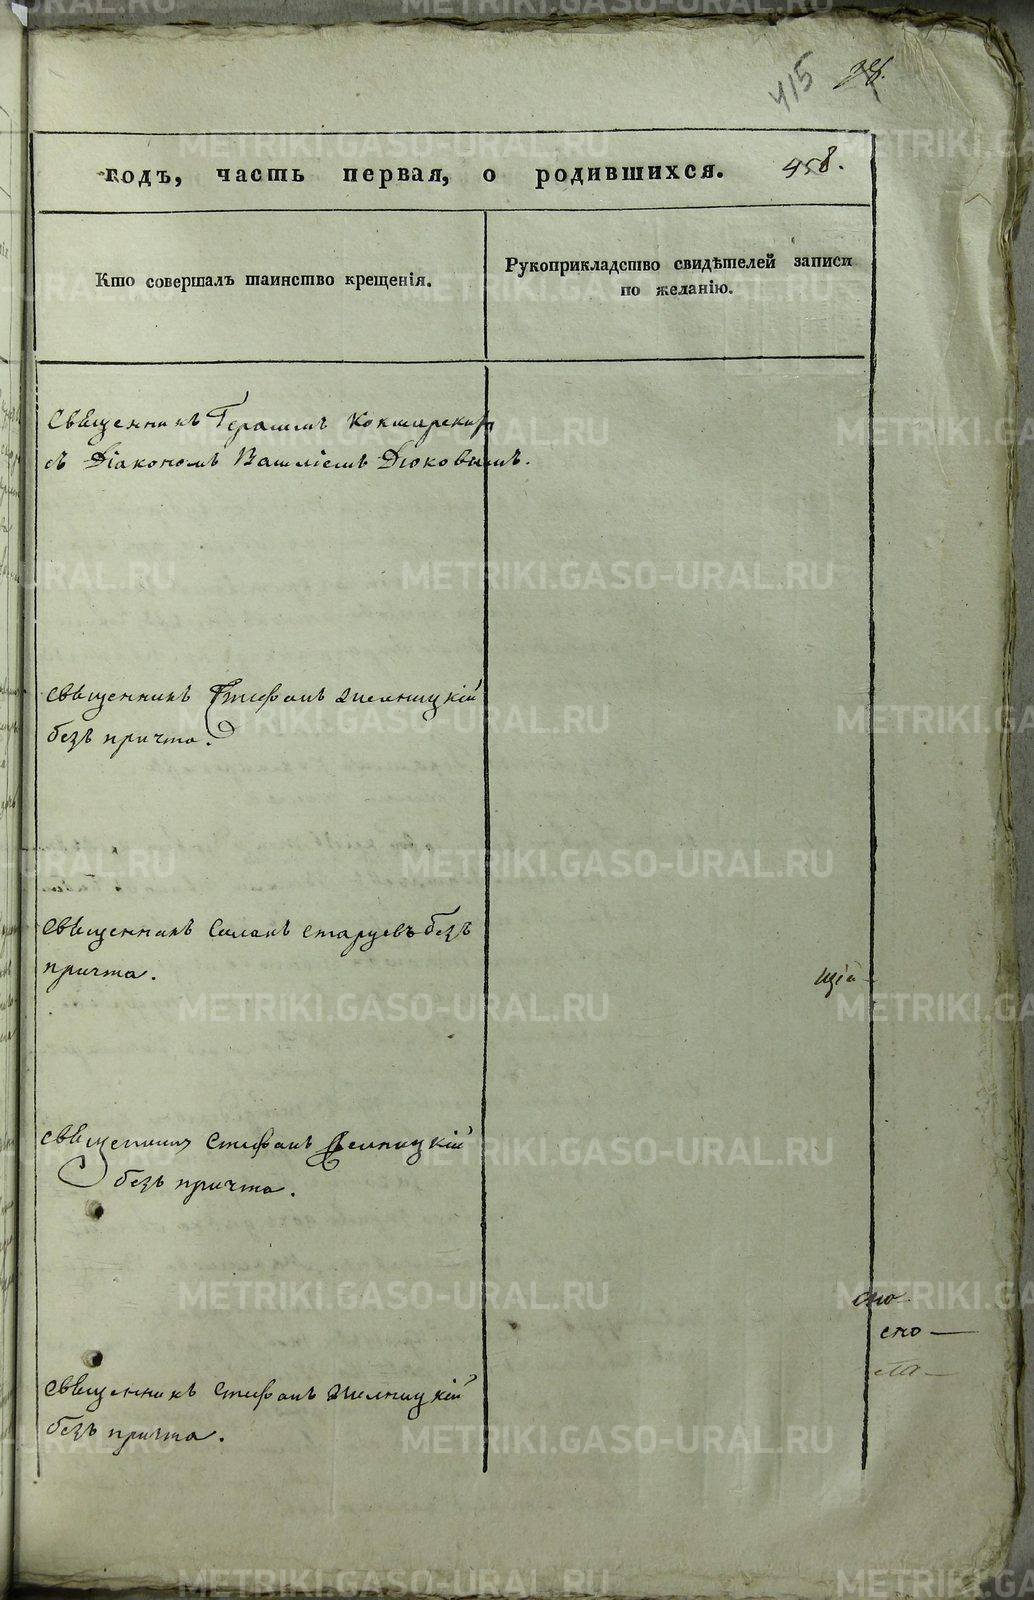 415
годъ, часть первая, о родившихся. 458.
Кто совершалъ таинство крещенія.
Рукоприкладство свидѣтелей записи
по желанію.
Священникъ Герасимъ
съ Діакономъ Василіемъ Дюковымъ.
Священникъ Стефанъ
безъ причта.
Священникъ Симонъ Старцевъ безъ
причта.
щій
Священникъ Стефанъ
безъ причта.
сно
сно
Священникъ Стефанъ
безъ причта.
METRIKI.GASO-URAL.RU